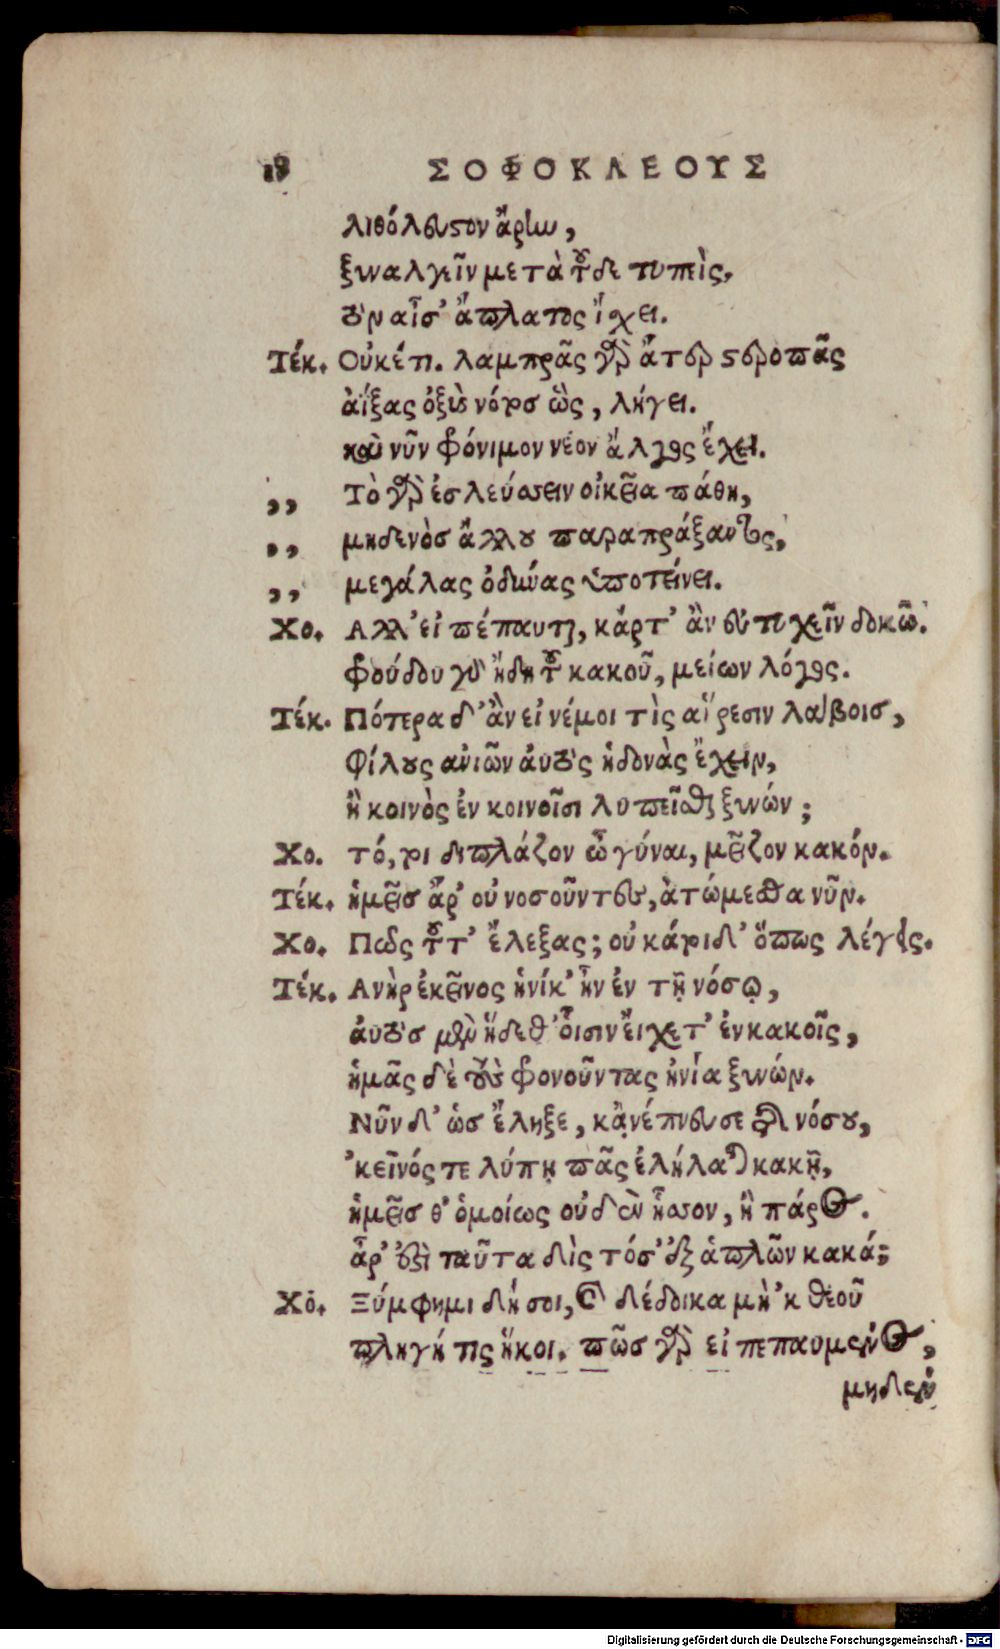 18 ΣΟΦΟΚΛΕΟΥΣ
λιθόλευστον ἄρην,
ξυναλγεῖν μετὰ τοῦδε τυπεὶς,
τὸν αἶσ' ἄπλατος ἴσχει.
Τέκ. Οὐκέτι. λαμπρᾶς γὰρ ἄτερ στεροπᾶς
ἀΐξας ὀξὺς νότος ὣς, λήγει.
καὶ νῦν φρόνιμον νέον ἄλγος ἔχει.
,, Τὸ γὰρ ἐσλεύσσειν οἰκεῖα πάθη,
,, μηδενὸς ἄλλου παραπράξαντος,
,, μεγάλας ὀδύνας ὑποτείνει.
Χο. Αλλ' εἰ πέπαυται, κάρτ' ἂν εὐτυχεῖν δοκῶ.
φρούδου γὰρ ἤδη τοῦ κακοῦ, μείων λόγος.
Τέκ. Πότερα δ' ἂν εἰ νέμοι τὶς αἵρεσιν λάβοις,
Φίλους ἀνιῶν αὐτὸς ἡδονὰς ἔχειν,
ἢ κοινὸς ἐν κοινοῖσι λυπεῖσθαι ξυνών;
Χο. τό, τοι διπλάζον ὦ γύναι, μεῖζον κακόν.
Τέκ. ἡμεῖς ἄρ' οὐ νοσοῦντες, ἀτώμεσθα νῦν.
Χο. Πῶς τοῦτ' ἔλεξας; οὐ κάτοιδ' ὅπως λέγεις.
Τέκ. Ανὴρ ἐκεῖνος ἡνίκ' ἦν ἐν τῇ νόσῳ,
αὐτὸς μὲν ἥδεθ' οἷσιν εἴχετ' ἐν κακοῖς,
ἡμᾶς δὲ τοὺς φρονοῦντας ἠνία ξυνών.
Νῦν δ' ὡς ἔληξε, κἀνέπνευσε τῆς νόσου,
'κεῖνός τε λύπῃ πᾶς ἐλήλαται κακῇ,
ἡμεῖς θ' ὁμοίως οὐδὲν ἧσσον, ἢ πάρος.
ἆρ' ἐστὶ ταῦτα δὶς τόσ' ἐξ ἁπλῶν κακά;
Χο. Ξύμφημι δή σοι, καὶ δέδοικα μὴ 'κ θεοῦ
πληγή τις ἥκοι. πῶς γὰρ εἰ πεπαυμένος,
μηδέν
Digitalisierung gefördert durch die Deutsche Forschungsgemeinschaft - DFG